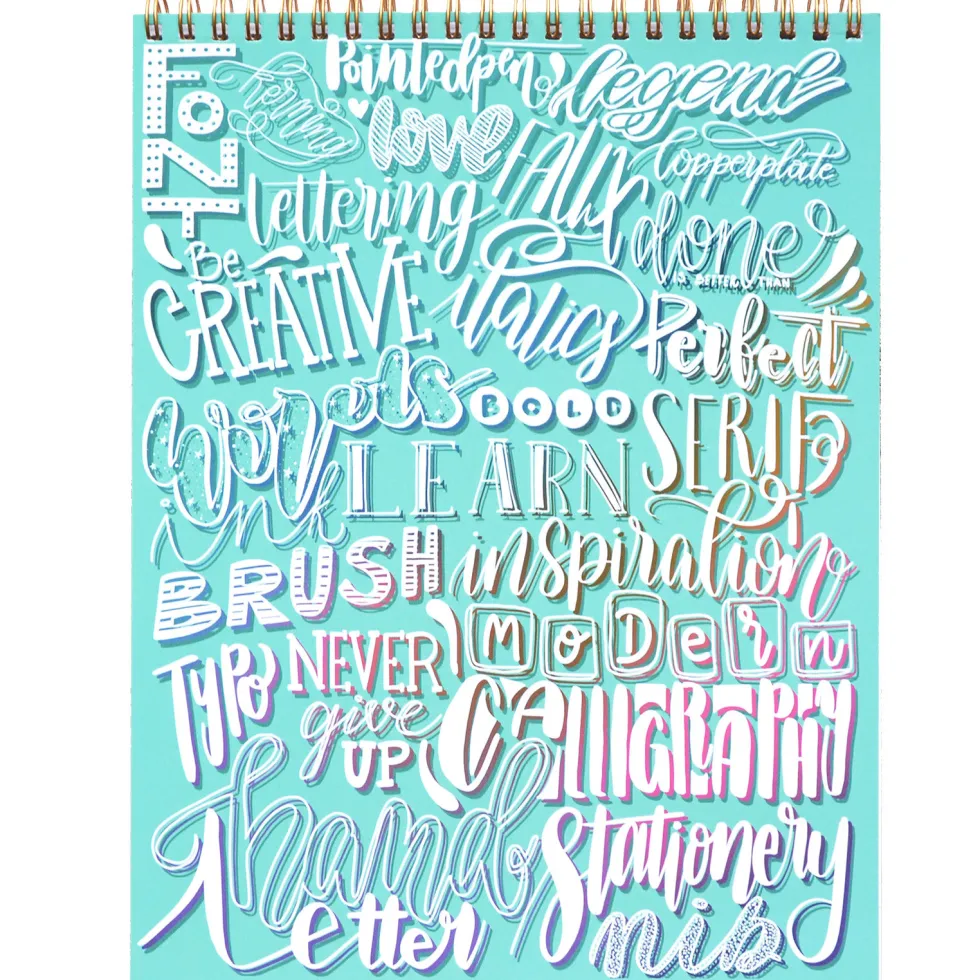 FONT
kerning
Pointedpen
legend
love
FAUX
Copperplate
lettering
done
IS BETTER THAN
Perfect
Be
CREATIVE
italics
words
BOLD
SERIF
ink
LEARN
BRUSH
inspiration
MoDern
TYPO
NEVER
give
UP
CALLIGRAPHY
hand
Letter
Stationery
nib